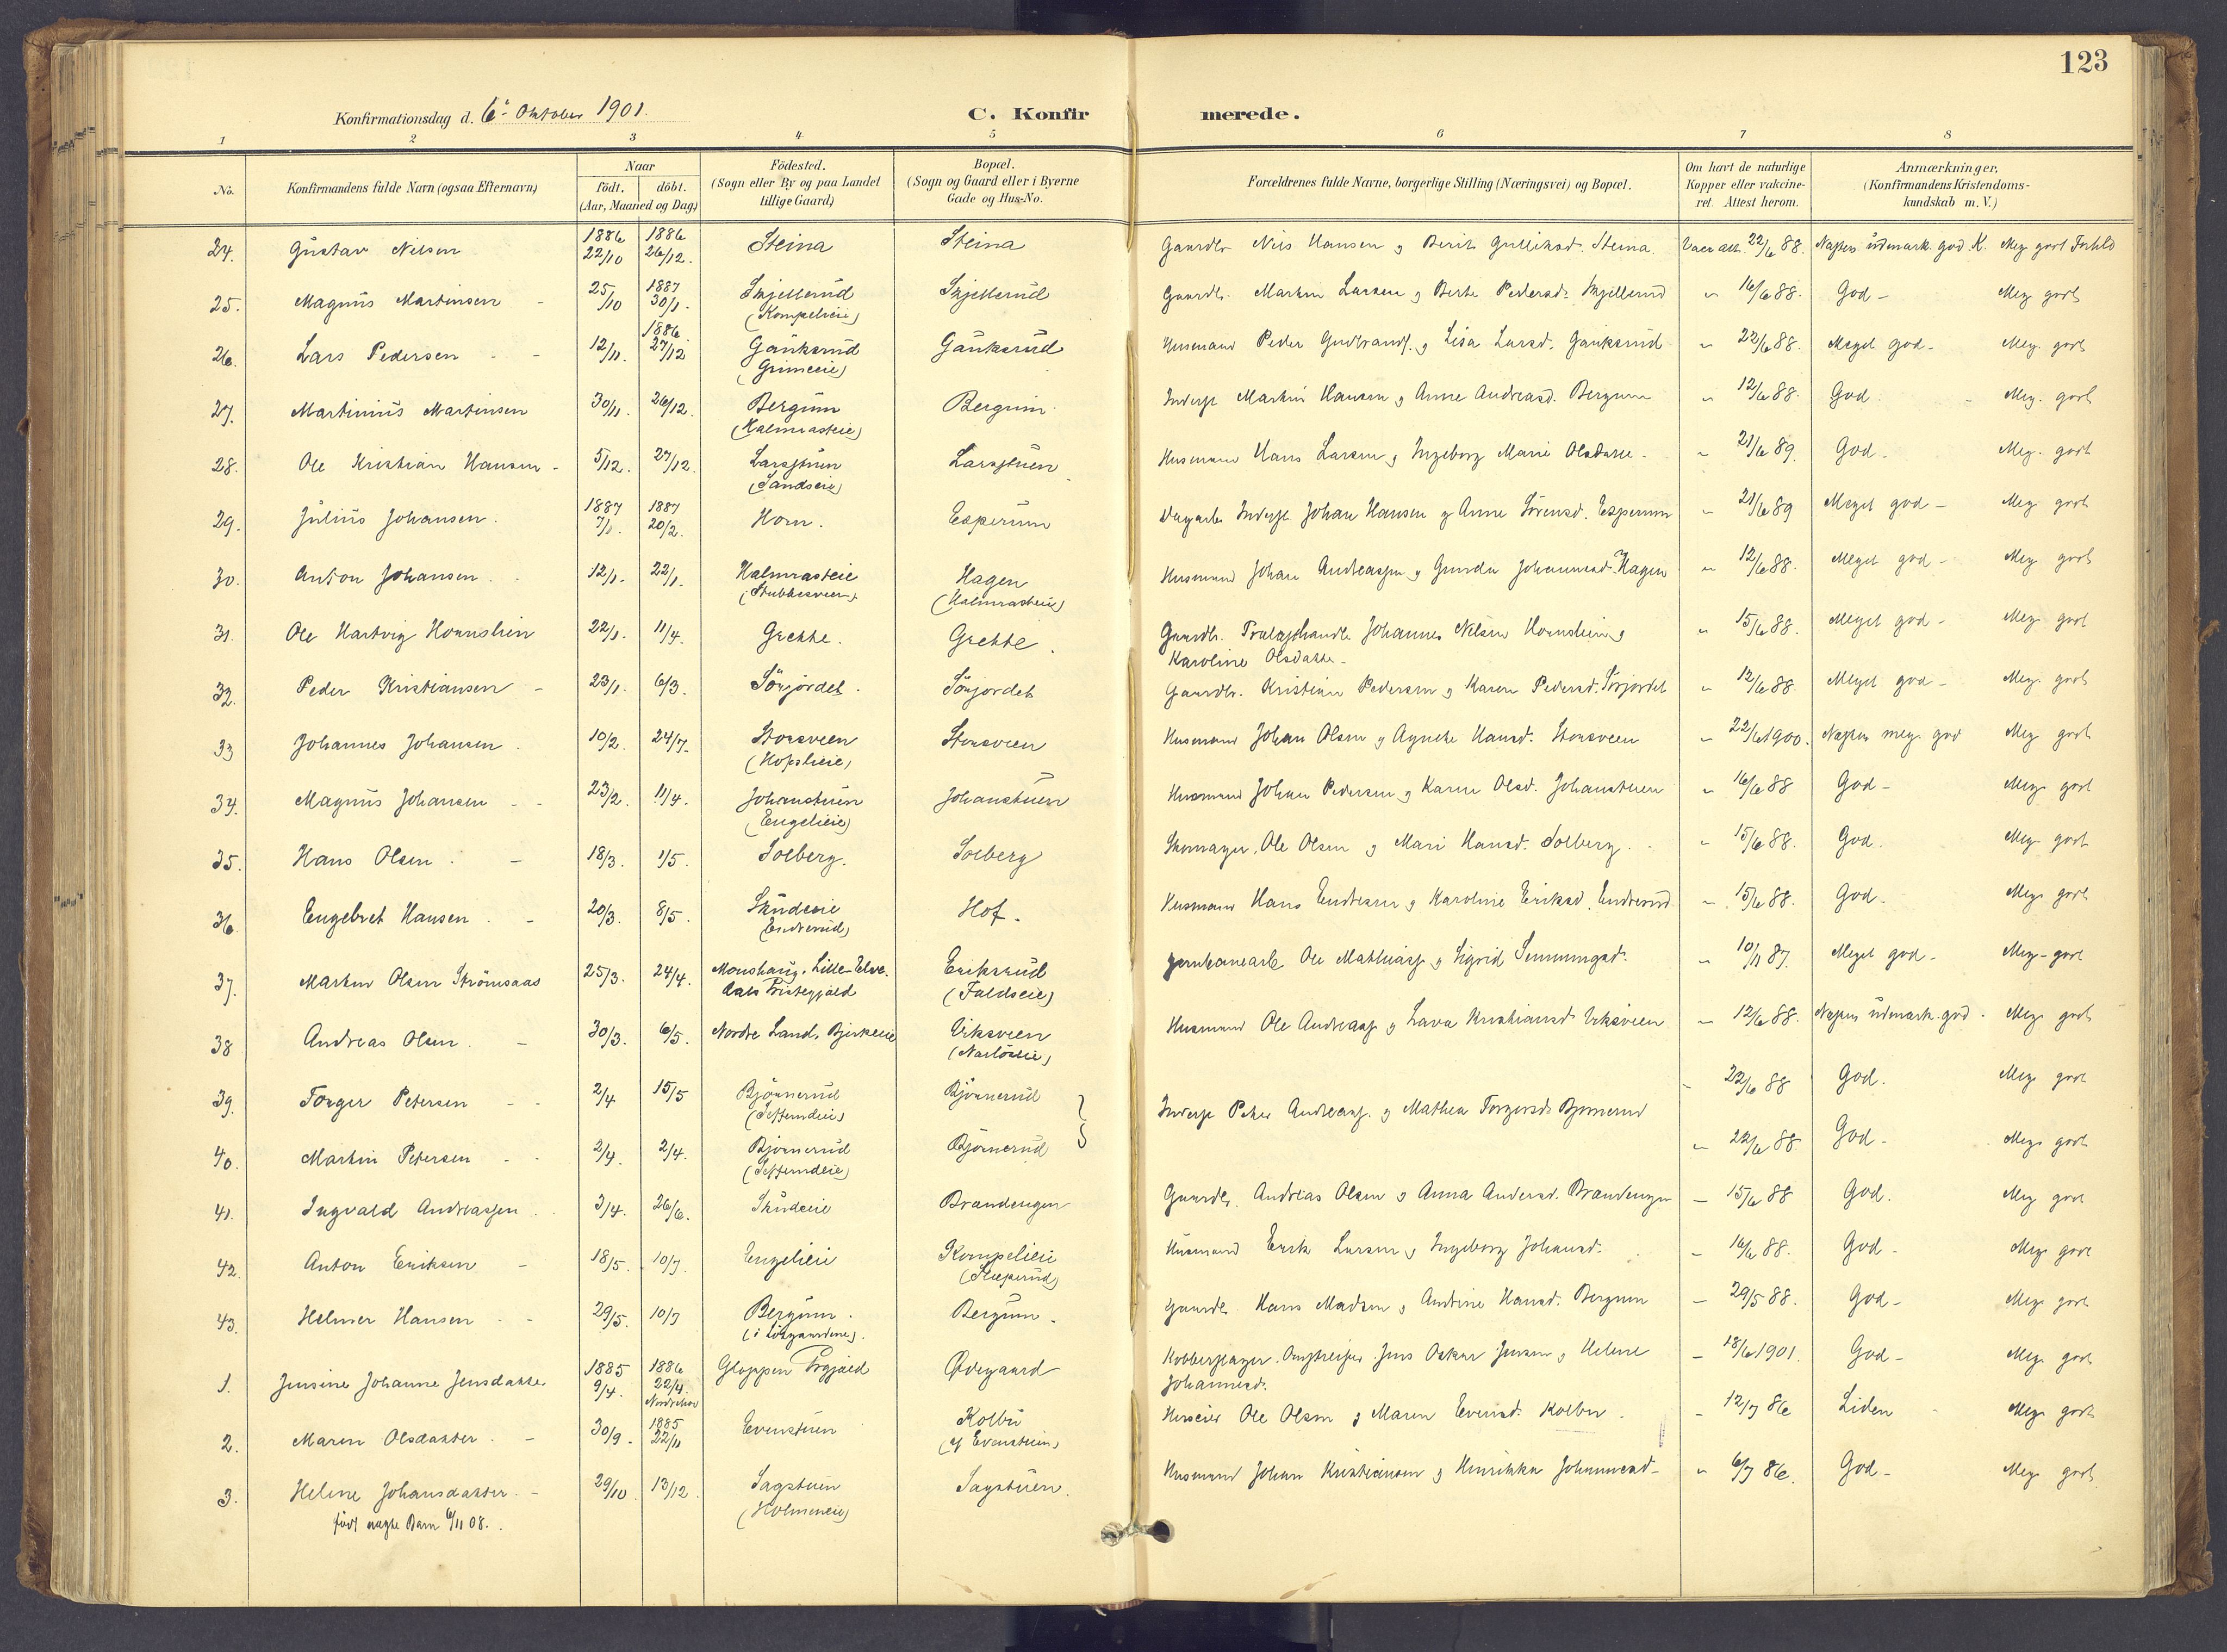 123
Konfirmationsdag d. 6te Oktober 1901.
C. Konfirmerede.
1 2 3 4 5 6 7 8
No. Konfirmandens fulde Navn (ogsaa Efternavn) Naar födt. döbt. (Aar, Maaned og Dag) Födested. (Sogn eller By og paa Landet tillige Gaard) Bopæl. (Sogn og Gaard eller i Byerne Gade og Hus-No. Forældrenes fulde Navne, borgerlige Stilling (Næringsvei) og Bopæl. Om havt de naturlige Kopper eller vakcineret. Attest herom. Anmærkninger. (Konfirmandens Kristendomskundskab m. V.)
24. Gustav Nilsen 1886 22/10 1886 26/12. Steina Steina Gaardbr. Nils Hansen g Berit Gulliksd. Steina. Vacc. att. 22/6 88. Næsten udmærk. god K. Meg. godt Forhold
25. Magnus Martinsen - 25/10 1887 30/1. Skjellerud (Kompelieie) Skjellerud Gaardbr. Martin Larsen g Berte Pedersd. Skjellerud " 16/6 88. God - Meg. godt
26. Lars Pedersen - - 12/11. 1886 27/12 Gaukerud (Grimeeie) Gaukerud Husmand Peder Gudbrands. g Lisa Larsd. Gaukerud " 22/6 88. Meget god - Meg. godt
27. Martinius Martinsen 30/11. 26/12. Bergum (Halmrasteie) Bergum Inderst Martin Hansen g Anne Andreasd. Bergum " 12/6 88. God. - Meg. godt
28. Ole Kristian Hansen - 5/12. 27/12. Larsstuen (Sandseie) Larsstuen Husmand Hans Larsen g Ingeborg Marie Olsdatter - " 21/6 89. God - Meg. godt
29. Julius Johansen. 1887 7/1. 1887 20/2. Horn. Esperum Dagarb. Inderst Johan Hansen g Anne Sörensd. Esperum " 21/6 89 Meget god - Meg. godt
30. Anton Johansen. 12/1. 22/1. Halmrasteie (Stubbesveen) Hagen (Halmrasteie) Husmand Johan Andreassen g Gunda Johannesd. Hagen " 12/6 88. Meget god - Meg. godt
31. Ole Hartvig Hornslien 22/1. 11/4. Grette. Grette. Gaardbr. Trælasthandl. Johannes Nilsen Hornslien g Karoline Olsdatter - " 15/6 88. Meget god - Meg. godt
32. Peder Kristiansen - 23/1. 6/3. Sörjordet. Sörjordet Gaardbr. Kristian Pedersen g Karen Pedersd. Sörjordet " 12/6 88. Meget god - Meg. godt
33 Johannes Johansen. 10/2. 24/7. Storsveen (Hofslieie) Storsveen Husmand Johan Olsen g Agnethe Hansd. Storsveen " 22/6 1900. Næsten meg. god Meg. godt
34. Magnus Johansen - - 23/2. 11/4. Johanstuen (Engelieie) Johanstuen Husmand Johan Pedersen g Karen Olsd. Johanstuen " 16/6 88 God - Meg. godt
35. Hans Olsen. - 18/3. 1/5. Solberg. Solberg Skomager. Ole Olsen g Mari Hansd. Solberg. " 15/6 88. God. Meg. godt
36. Engebret Hansen. - 20/3. 8/5. Skudeeie (Endrerud) Hof. Husmand Hans Endresen g Karoline Eriksd. Endrerud " 15/6 88. God. Meg. godt
37. Martin Olsen Strömsaas 25/3. 24/4. Monshaug. Lille-Elvedals Prstegjæld Eriksrud (Faldseie) Jernbanearb. Ole Mathias. g Sigrid Simmingsd. " 10/11 87. Meget god - Meg. godt
38 Andreas Olsen. - 30/3. 6/5. Nordre Land, Bjerkeeie Eriksveen (Narlöseie) Husmand Ole Andreass. g Lava Kristiansd. Eriksveen - 12/6 88. Næsten udmærk. god. Meg. godt
39. Torger Petersen - - 2/4 15/5 Björnerud (Seffermdeie) Björnerud } Inderst Peter Andreas. g Mathea Torgersd. Björnerud - 22/6 88 God. Meg. godt
40. Martin Petersen - - 2/4. 2/4. Björnerud (Seffermdeie) Björnerud " 22/6 88. God - Meg. godt
41. Ingvald Andreassen. 3/4. 26/6. Skudeeie Brandengen Gaardbr. Andreas Olsen g Anna Andersd. Brandengen - 15/6 88 God. Meg. godt
42. Anton Eriksen - 18/5. 10/7. Engelieie Kompelieie (Sleperud) Husmand Erik Larsen g Ingeborg Johansd. - 16/6 88. God - Meg. godt
43. Helmer Hansen - - 29/5. 10/7 Bergum. (i Lösgaardene). Bergum. Gaardbr. Hans Madsen g Andrine Hansd. Bergum - 29/5 88. God - Meg. godt
1. Jensine Johanne Jensdatter 1885 9/4. 1886 22/4. Gloppen Prgjæld Ödegaard Kobberslager. Jens Oskar Jensen g Helene Johannesd. - 18/6 1901. God - Meg. godt
2. Maren Olsdatter. - 30/9. 1885 22/11 Evenstuen Kolbu (af Evenstuen) Huseier Ole Olsen g Maren Evensd. Kolbu. - 12/7 86 Liden - Meg. godt
3. Helene Johansdatter. - 29/10 13/12. Sagstuen (Holmeneie) Sagstuen. Husmand Johan Kristiansen g Henrikka Johannesd. - " 6/7 86. God - Meg. godt
födt uægte Barn 6/11 08.